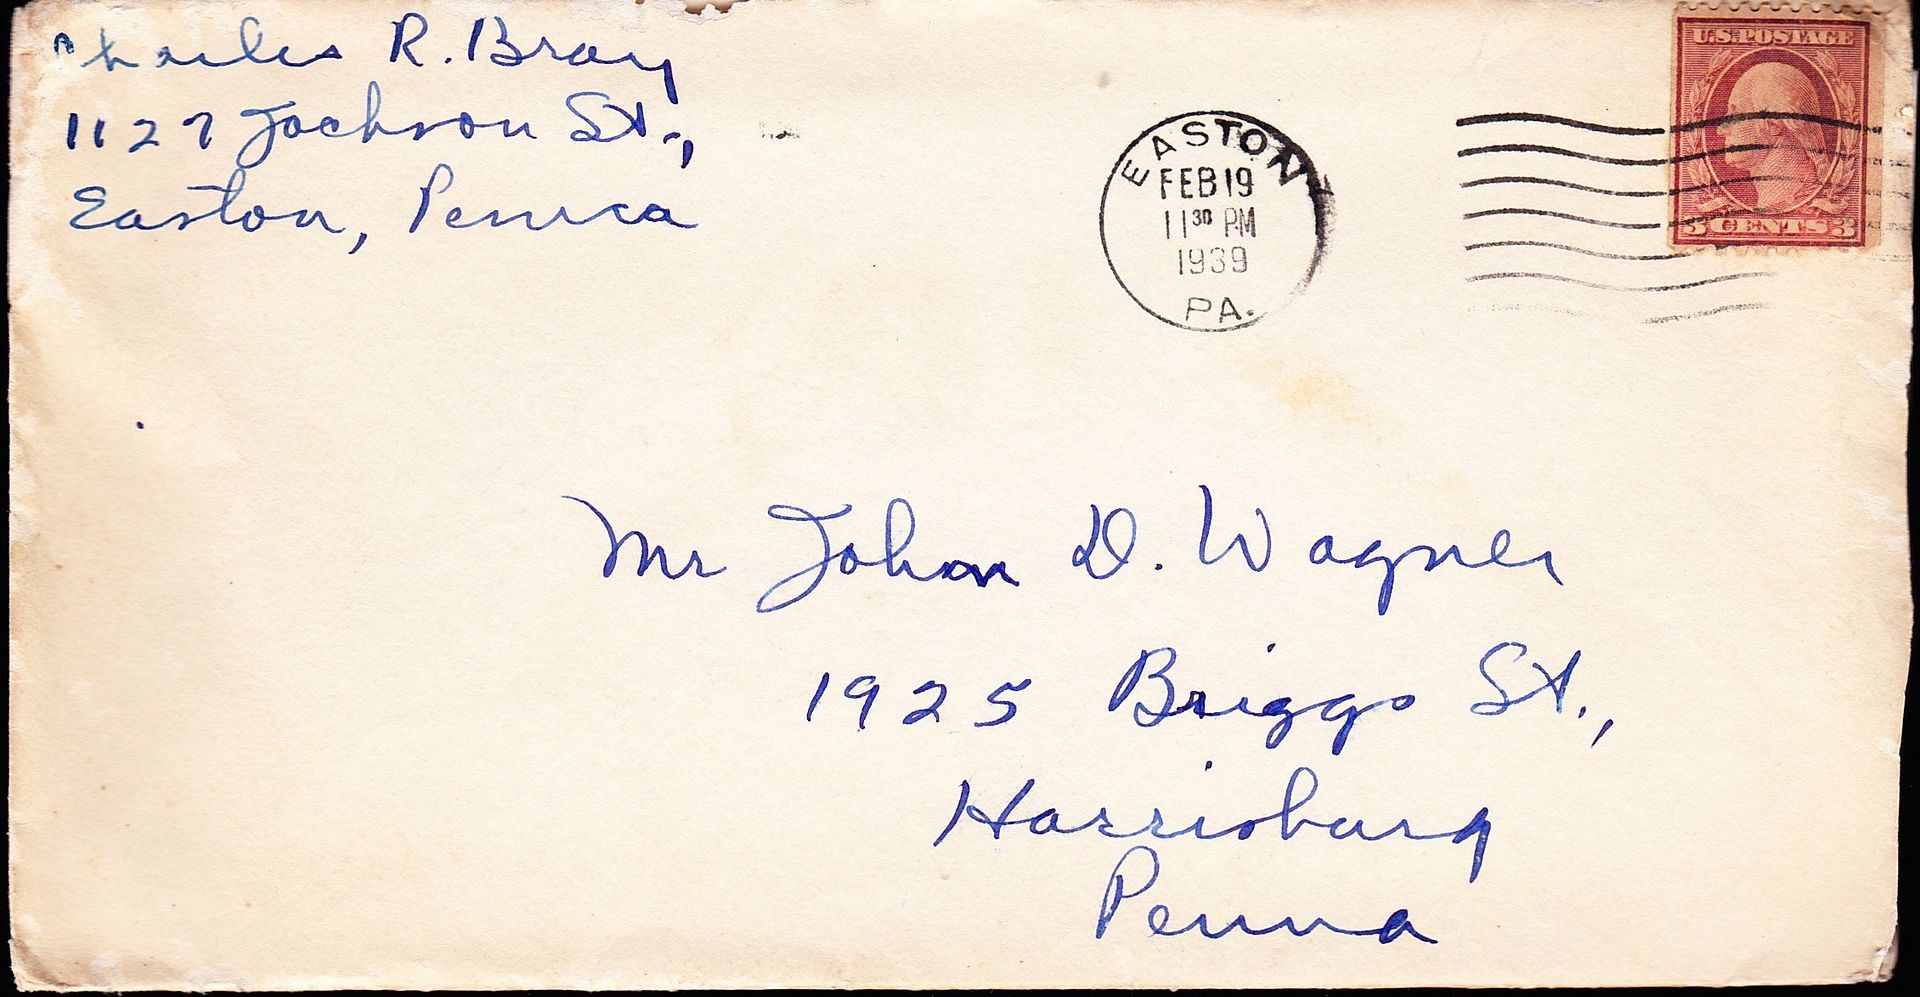 Charles R. Bray
1127 Jackson St.,
Easton, Penna
EASTON
FEB 19
11 30 PM
1939
PA.
U.S. POSTAGE
3 CENTS 3
Mr John D. Wagner
1925 Briggs St.,
Harrisburg
Penna